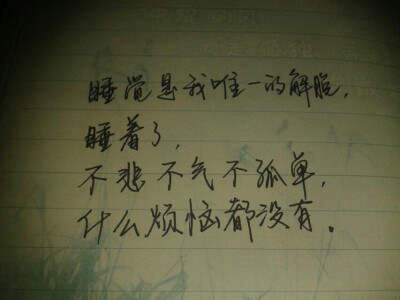 睡觉是我唯一的解脱，
睡着了，
不悲不气不孤单，
什么烦恼都没有。